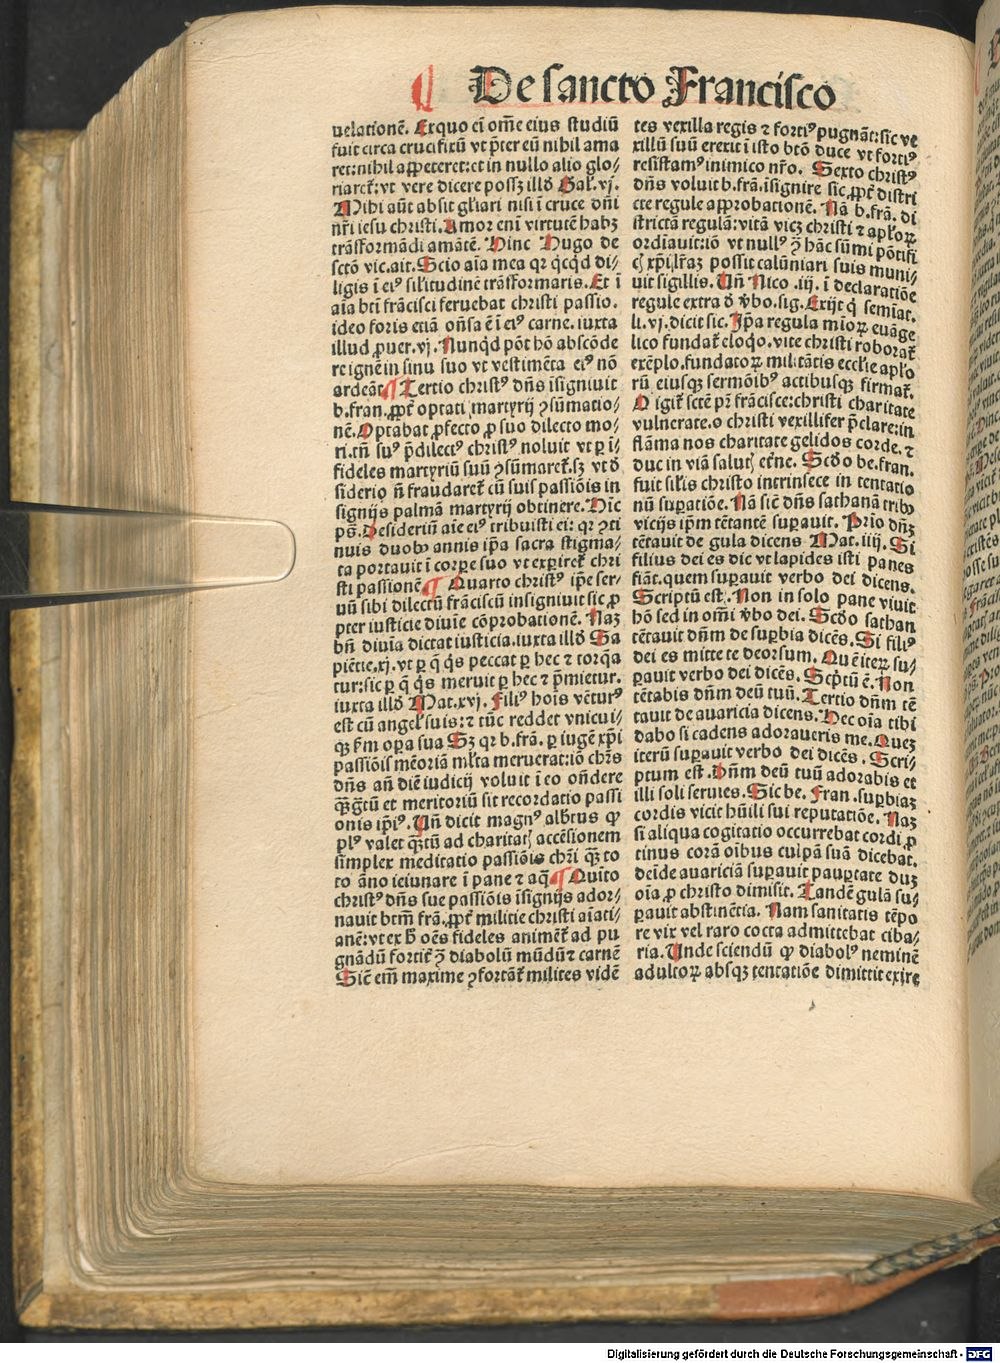 De sancto Francisco
uelationē. Exquo eī om̄e eius studiū
fuit circa crucifixū vt p̄ter eū nihil ama
ret: nihil appeteret: et in nullo alio glo⸗
riaret̄: vt vere dicere possꝫ illđ Gal̄. vj.
Mihi aūt absit gl̄iari nisi ī cruce dn̄i
nr̄i iesu christi. Amor enī virtutē habꝫ
trāsformādi amātē. Hinc Hugo de
sctō vic. ait. Scio aīa mea qꝛ qͥcqͥd di⸗
ligis ī eiꝰ sil̄itudinē trāsformaris. Et ī
aīa btī frācisci feruebat christi passio.
ideo foris etiā on̄sa ē ī eiꝰ carne. iuxta
illud ꝓuer. vj. Nunqͥd pōt hō abscōde
re ignē in sinu suo vt vestimēta eiꝰ nō
ardeāt ¶ Tertio christꝰ dn̄s īsigniuit
b. fran. ꝓpt̄ optati martyrij ꝯsūmatio⸗
nē. Optabat ꝓfecto ꝓ suo dilecto mo⸗
ri. tn̄ suꝰ p̄dilectꝰ christꝰ noluit vt ꝑ ī⸗
fideles martyriū suū ꝯsūmaret̄. sꝫ vt đ
siderio n̄ fraudaret̄ cū suis passiōis in
signijs palmā martyrij obtinere. Hīc
ps̄. Desideriū aīe eiꝰ tribuisti ei: qꝛ ꝯti
nuis duobꝰ annis ip̄a sacra stigma⸗
ta portauit ī corꝑe suo vt exꝑiret̄ chri
sti passionē ¶ Quarto christꝰ ip̄e ser⸗
uū sibi dilectū frāciscū insigniuit sic ꝓ
pter iusticie diuīe cōprobationē. Naꝫ
bn̄ diuīa dictat iusticia. iuxta illđ Sa
piētie. xj. vt ꝑ q̄ qͥs peccat ꝑ hec ⁊ torq̄a
tur: sic ꝑ q̄ qͥs meruit ꝑ hec ⁊ p̄mietur.
iuxta illđ Mat. xvj. Filiꝰ hoīs vētur̄ꝰ
est cū angel̄ suis: ⁊ tūc reddet vnicui⸗
qꝫ ẜm oꝑa sua Sꝫ qꝛ b. frā. ꝑ iugē xp̄i
passiōis mēoriā ml̄ta meruerat: iō chr̄s
dn̄s an̄ diē iudicij voluit ī eo on̄dere
et meritoriū sit recordatio passi
onis ip̄iꝰ. Un̄ dicit magnꝰ alb̄tus ꝙ
plꝰ valet qͣꝫtū ad charitatꝭ accēsionem
simplex meditatio passiōis chr̄i qͣꝫ to
to āno ieiunare ī pane ⁊ aq̄ ¶ Quīto
christꝰ dn̄s sue passiōis īsignijs ador⸗
nauit btm̄ frā. ꝓpt̄ militie christi aīati⸗
anē: vt ex h̄ oēs fideles animēt̄ ad pu
gnādū fortit̄ ꝯ̄ diabolū mūdū ⁊ carnē
Sic̄ em̄ maxime ꝯfortāt̄ milites vidē
tes vexilla regis ⁊ fortiꝰ pugnāt: sic ve
xillū suū erexit ī isto btō duce vt fortiꝰ
resistamꝰ inimico nr̄o. Sexto christꝰ
dn̄s voluit b. frā. īsignire sic ꝓpt̄ distri
cte regule approbationē. Nā b. frā. di
strictā regulā: vitā vicꝫ christi ⁊ apl̄oꝝ
ordīauit: iō vt nullꝰ ꝯ̄ hāc sūmi pōtifi
cꝭ xp̄i lr̄aꝫ possit calūniari suis muni⸗
uit sigillis. Un̄ Nico. iij. ī declaratiōe
regule extra đ v̄bo. sig. Exijt q̄ semīat.
li. vj. dicit sic. Ip̄a regula mīoꝝ euāge
lico fundat̄ eloqͦ. vite christi roborat̄
exēplo. fundatoꝝ militātis eccl̄ie apl̄o
rū eiusqꝫ sermōibꝰ actibusqꝫ firmat̄.
O igit̄ sctē pr̄ frācisce: christi charitate
vulnerate. o christi vexillifer p̄clare: in
flāma nos charitate gelidos corde. ⁊
duc in viā salutꝭ et̄ne. Scđo be. fran.
fuit sil̄is christo intrinsece in tentatio
nū suꝑatiōe. Nā sic̄ dn̄s sathanā tribꝰ
vicijs ip̄m tētantē suꝑauit. Prīo dn̄ꝫ
tētauit de gula dicens Mat. iiij. Si
filius dei es dic vt lapides isti panes
fiāt. quem suꝑauit verbo dei dicens.
Scriptū est. Non in solo pane viuit
hō sed in om̄i v̄bo dei. Scđo sathan
tētauit dn̄m de suꝑbia dicēs. Si filiꝰ
dei es mitte te deorsum. Quē iteꝝ su⸗
ꝑauit verbo dei dicēs. Scp̄tū ē. Non
tētabis dn̄m deū tuū. Tertio dn̄m tē
tauit de auaricia dicens. Hec oīa tibi
dabo si cadens adoraueris me. Queꝫ
iterū suꝑauit verbo dei dicēs. Scri⸗
ptum est. Dn̄m deū tuū adorabis et
illi soli seruies. Sic be. Fran. suꝑbiaꝫ
cordis vicit hūili sui reputatiōe. Naꝫ
si aliqua cogitatio occurrebat cordi ꝓ
tinus corā oībus culpā suā dicebat.
deīde auariciā suꝑauit pauꝑtate duꝫ
oīa ꝓ christo dimisit. Tandē gulā su⸗
ꝑauit abstinētia. Nam sanitatis tēpo
re vix vel raro cocta admittebat ciba⸗
ria. Unde sciendū ꝙ diabolꝰ neminē
adultoꝝ absqꝫ tentatiōe dimittit exire
Digitalisierung gefördert durch die Deutsche Forschungsgemeinschaft - DFG